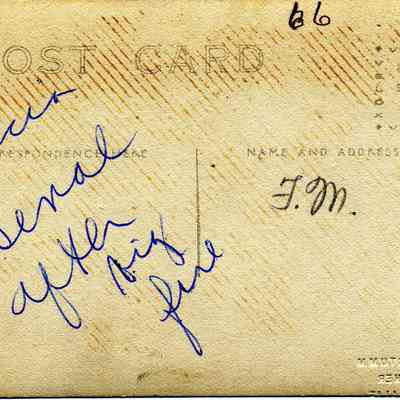 66
POST CARD
CORRESPONDENCE HERE
NAME AND ADDRESS
F. M.
senal
after
big
fire